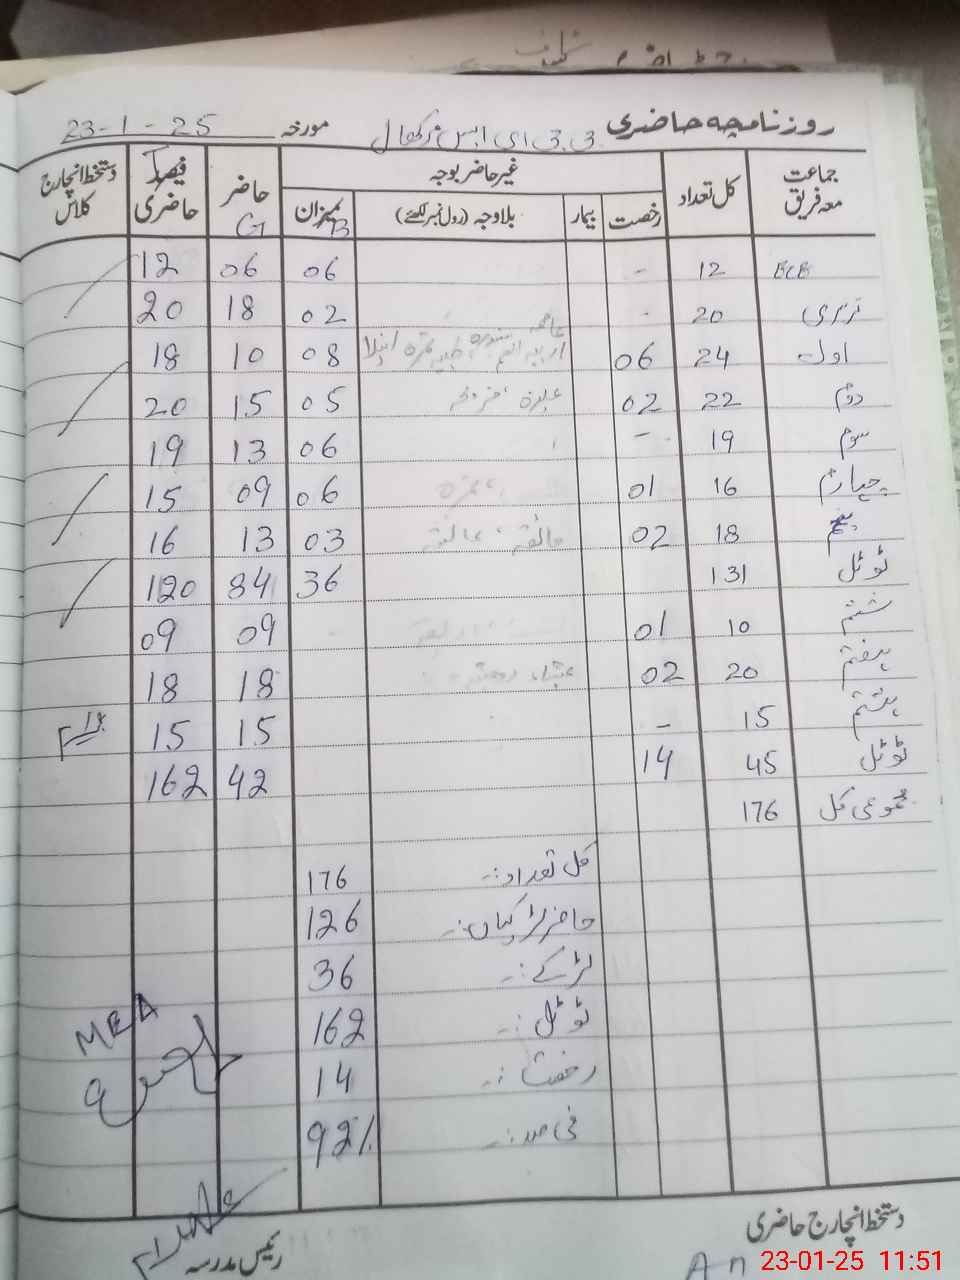 روزنامچہ حاضری جی جی ای ایس مورخہ 23-1-25
جماعت معہ فریق کل تعداد غیر حاضر بوجہ حاضر G فیصد حاضری دستخط انچارج کلاس
رخصت بیمار بلاوجہ (رول نمبر لکھئے) میزان B
ECE 12 - 06 06 12
نرسری 20 - 02 18 20
اول 24 06 08 10 18
دوم 22 02 05 15 20
سوم 19 - 06 13 19
چہارم 16 01 06 09 15
پنجم 18 02 03 13 16
ٹوٹل 131 36 84 120
ششم 10 01 09 09
ہفتم 20 02 18 18
ہشتم 15 - 15 15
ٹوٹل 45 14 42 162
مجموعی کل 176
کل تعداد:۔ 176
حاضر لڑکیاں:۔ 126
لڑکے:۔ 36
ٹوٹل:۔ 162
رخصت:۔ 14
فی صد:۔ 92%
MEA
دستخط انچارج حاضری رئیس مدرسہ
23-01-25 11:51